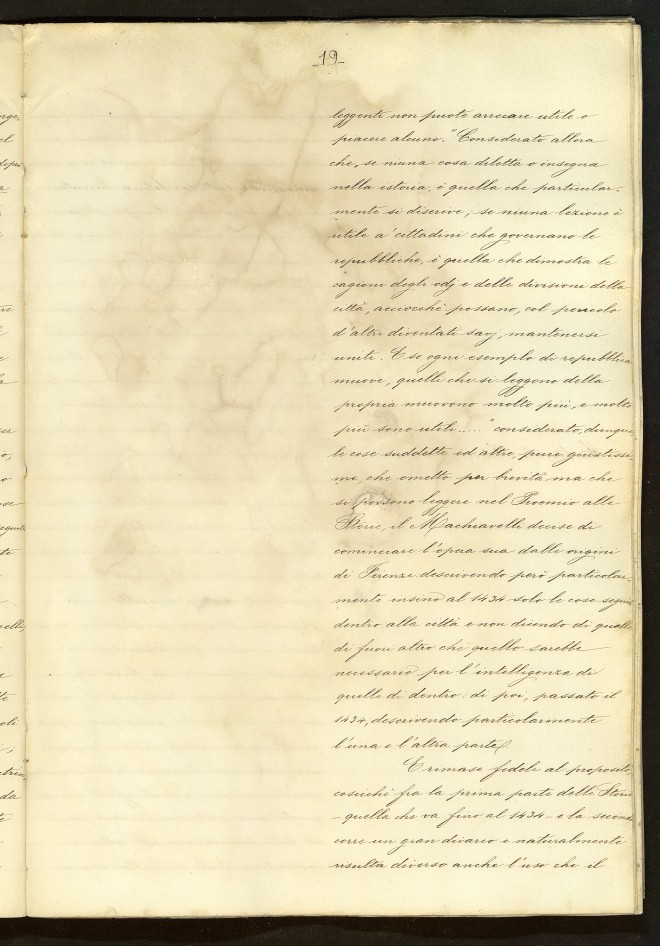 19
leggenti non puote arrecare utile o
piacere alcuno." Considerato allora
che, se niuna cosa diletta o insegna
nella istoria, è quella che particular-
mente si discrive; se niuna lezione è
utile a' cittadini che governano le
repubbliche, è quella che dimostra le
cagioni degli odj e delle divisioni della
città, acciocchè possano, col pericolo
d'altri diventati savj, mantenersi
uniti. E se ogni esempio di repubblica
muove, quelli che si leggono della
propria muovono molto più, e molto
più sono utili....." considerato, dunque
le cose suddette ed altre, pure giustissi-
me, che ometto per brevità ma che
si possono leggere nel Proemio alle
Storie, il Machiavelli decise di
cominciare l'opera sua dalle origini
di Firenze descrivendo però particolar-
mente insino al 1434 solo le cose seguite
dentro alla città e non dicendo di quelle
di fuori altro che quello sarebbe
necessario per l'intelligenza di
quelle di dentro: di poi, passato il
1434, descrivendo particolarmente
l'una e l'altra parte.
E rimase fedele al proposito,
cosicchè fra la prima parte delle Storie
- quella che va fino al 1434 - e la seconda
corre un gran divario e naturalmente
risulta diverso anche l'uso che il